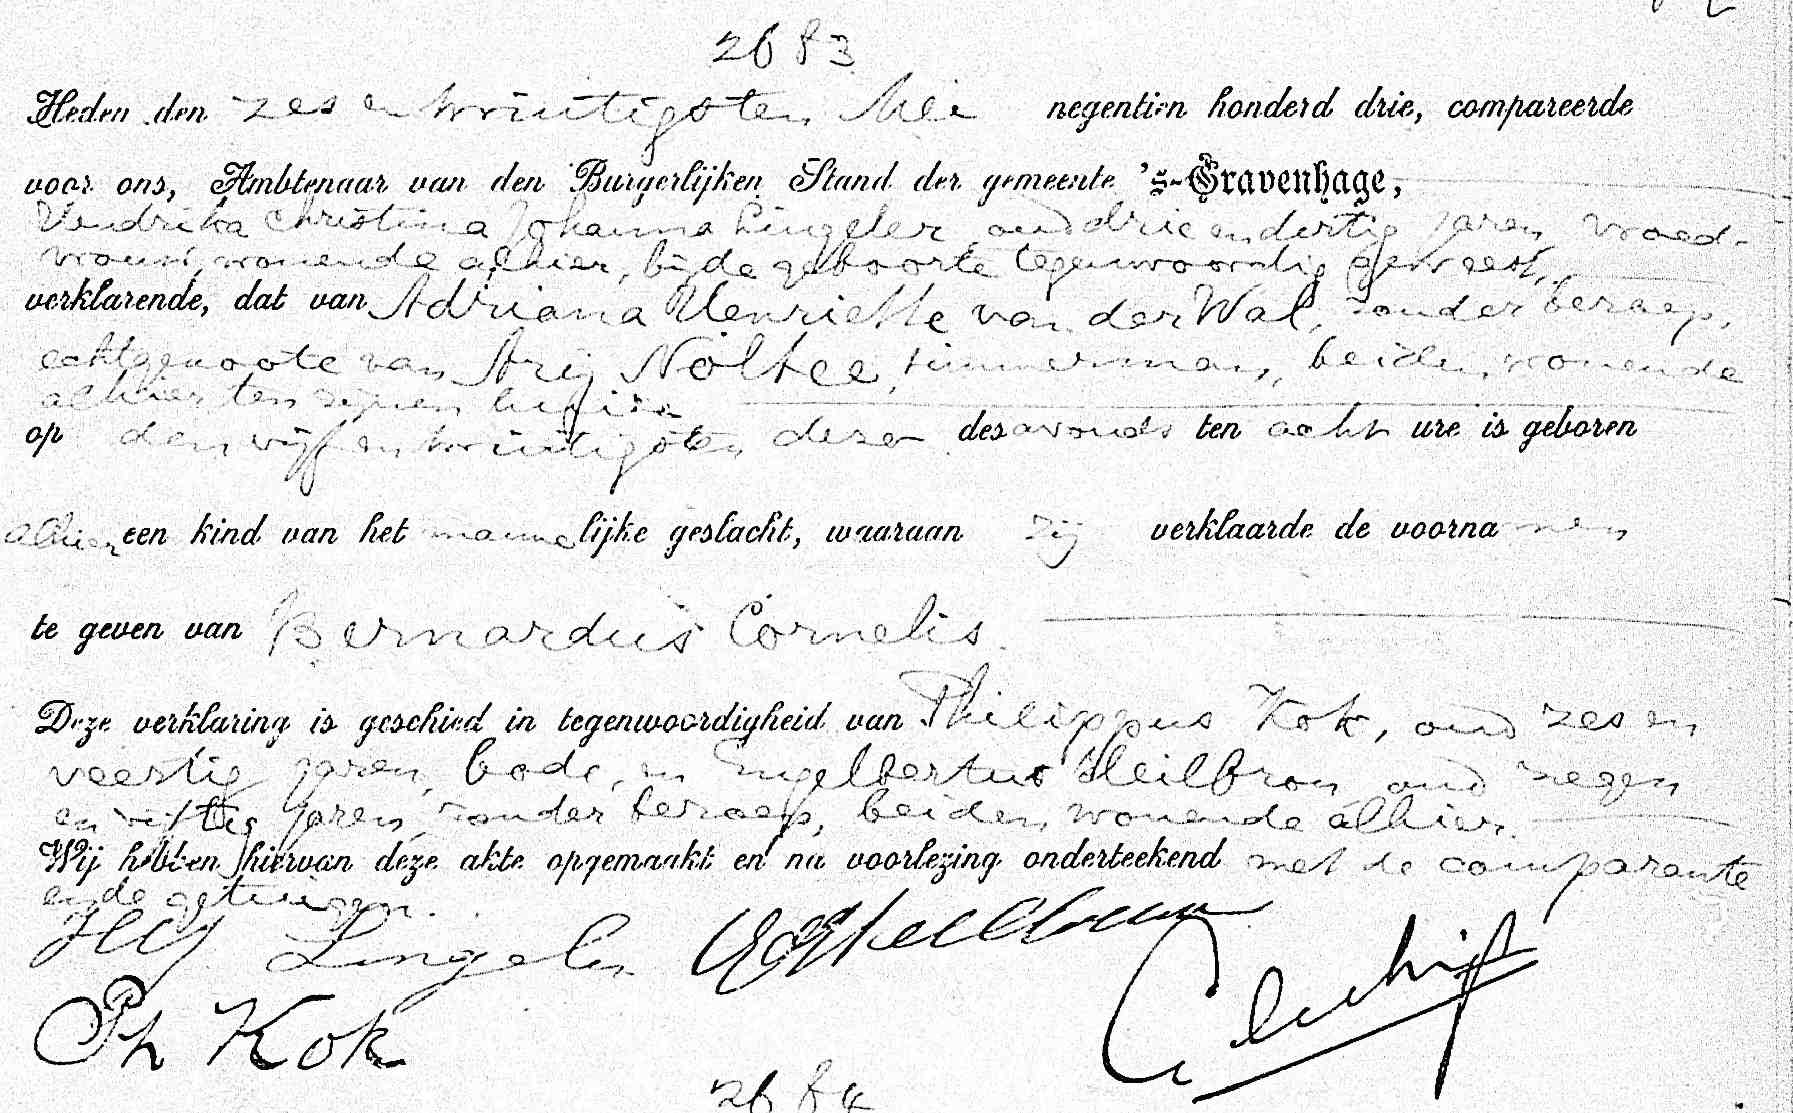 2683
Heden den zes en twintigsten Mei negentien honderd drie, compareerde
voor ons, Ambtenaar van den Burgerlijken Stand der gemeente 's-Gravenhage,
Hendrika Christina Johanna Lingeler, oud drie en dertig jaren, vroed-
vrouw, wonende alhier, bij de geboorte tegenwoordig geweest,
verklarende, dat van Adriana Henriette van der Wal, zonder beroep,
echtgenoote van Arij Noltee, timmerman, beiden wonende
alhier ten zijnen huize
op den vijf en twintigsten dezer des avonds ten acht ure is geboren
alhier een kind van het mannelijke geslacht, waaraan zij verklaarde de voornamen
te geven van Bernardus Cornelis.
Deze verklaring is geschied in tegenwoordigheid van Philippus Kok, oud zes en
veertig jaren, bode, en Engelbertus Heilbron, oud negen
en vijftig jaren, zonder beroep, beiden wonende alhier.
Wij hebben hiervan deze akte opgemaakt en na voorlezing onderteekend met de comparante
en de getuigen.
HCJ Lingeler
Ph Kok
2684